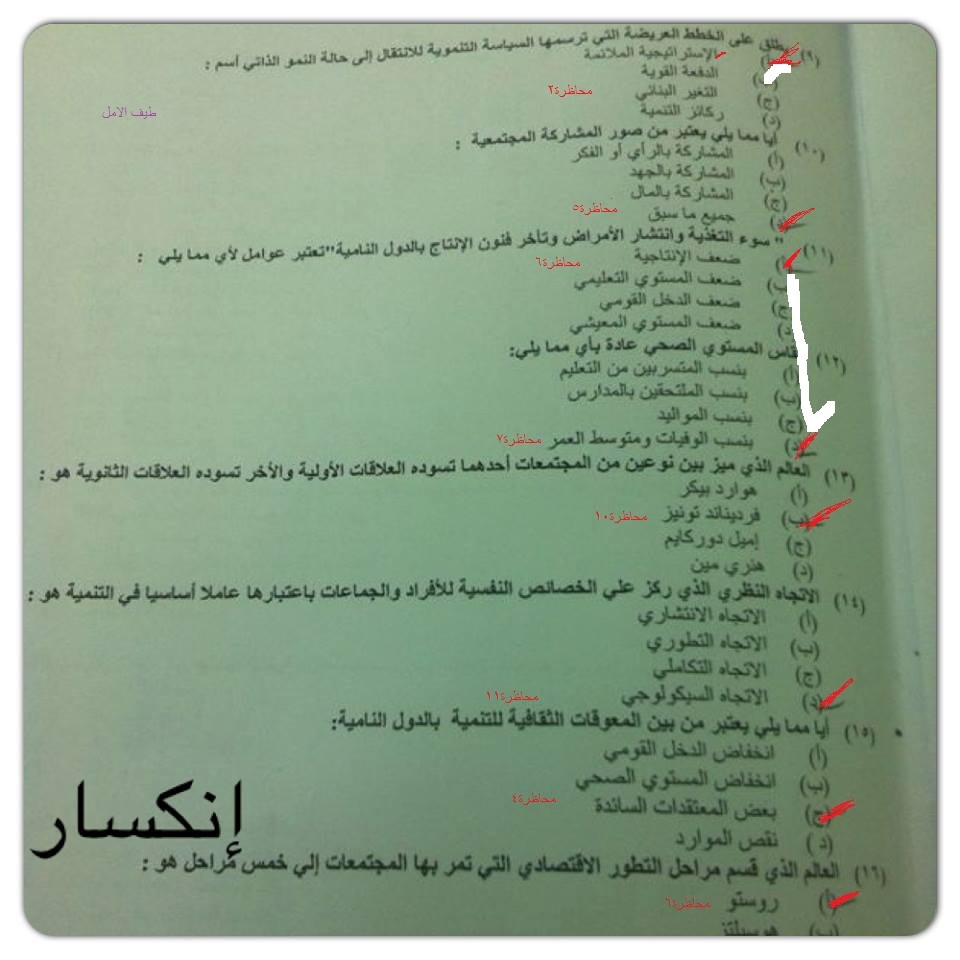 (٩) يطلق على الخطط العريضة التي ترسمها السياسة التنموية للانتقال إلى حالة النمو الذاتي أسم :
الإستراتيجية الملائمة
الدفعة القوية
(ج) التغير البنائي محاظرة٢
(د) ركائز التنمية
طيف الامل
(١٠) أيا مما يلي يعتبر من صور المشاركة المجتمعية :
(أ) المشاركة بالرأي أو الفكر
(ب) المشاركة بالجهد
(ج) المشاركة بالمال
(د) جميع ما سبق محاظرة٥
(١١) " سوء التغذية وانتشار الأمراض وتأخر فنون الإنتاج بالدول النامية"تعتبر عوامل لأي مما يلي :
(أ) ضعف الإنتاجية محاظرة٦
(ب) ضعف المستوي التعليمي
(ج) ضعف الدخل القومي
(د) ضعف المستوي المعيشي
(١٢) يقاس المستوي الصحي عادة بأي مما يلي:
(أ) بنسب المتسربين من التعليم
(ب) بنسب الملتحقين بالمدارس
(ج) بنسب المواليد
(د) بنسب الوفيات ومتوسط العمر محاظرة٧
(١٣) العالم الذي ميز بين نوعين من المجتمعات أحدهما تسوده العلاقات الأولية والأخر تسوده العلاقات الثانوية هو :
(أ) هوارد بيكر
(ب) فرديناند تونيز محاظرة١٠
(ج) إميل دوركايم
(د) هنري مين
(١٤) الاتجاه النظري الذي ركز علي الخصائص النفسية للأفراد والجماعات باعتبارها عاملا أساسيا في التنمية هو :
(أ) الاتجاه الانتشاري
(ب) الاتجاه التطوري
(ج) الاتجاه التكاملي
(د) الاتجاه السيكولوجي محاظرة١١
(١٥) أيا مما يلي يعتبر من بين المعوقات الثقافية للتنمية بالدول النامية:
(أ) انخفاض الدخل القومي
(ب) انخفاض المستوي الصحي
(ج) بعض المعتقدات السائدة محاظرة٤
(د) نقص الموارد
إنكسار
(١٦) العالم الذي قسم مراحل التطور الاقتصادي التي تمر بها المجتمعات إلي خمس مراحل هو :
(أ) روستو محاظر٦٤
(ب) هوسيلتز